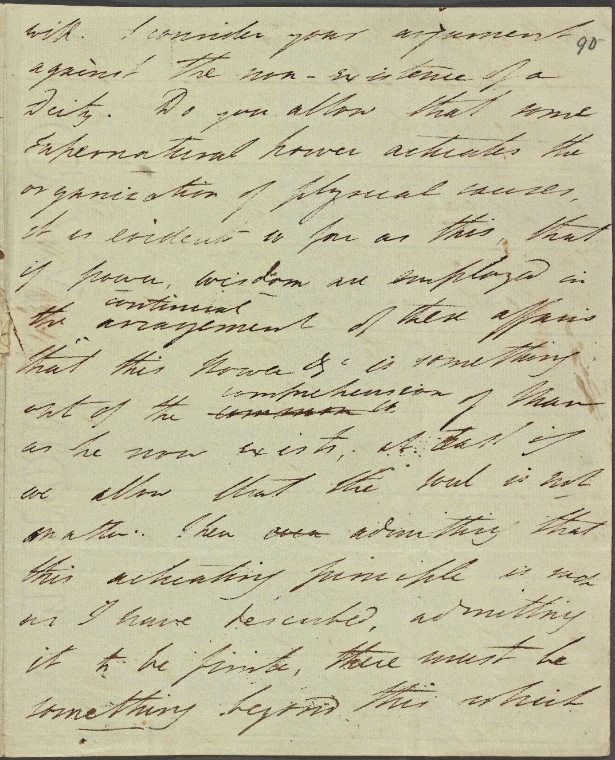 will. I consider your argument
90
against the non-existence of a
Deity. Do you allow that some
supernatural power actuates the
organization of physical causes,
it is evident to you as this, that
if power, wisdom are employed in
continual
the arrangement of these affairs
that this power &c is something
comprehension
out of the common of Man
as he now exists, at least if
we allow that the soul is not
matter. Then even admitting that
this actuating principle is not
as I have described, admitting
it to be finite, there must be
something beyond this which